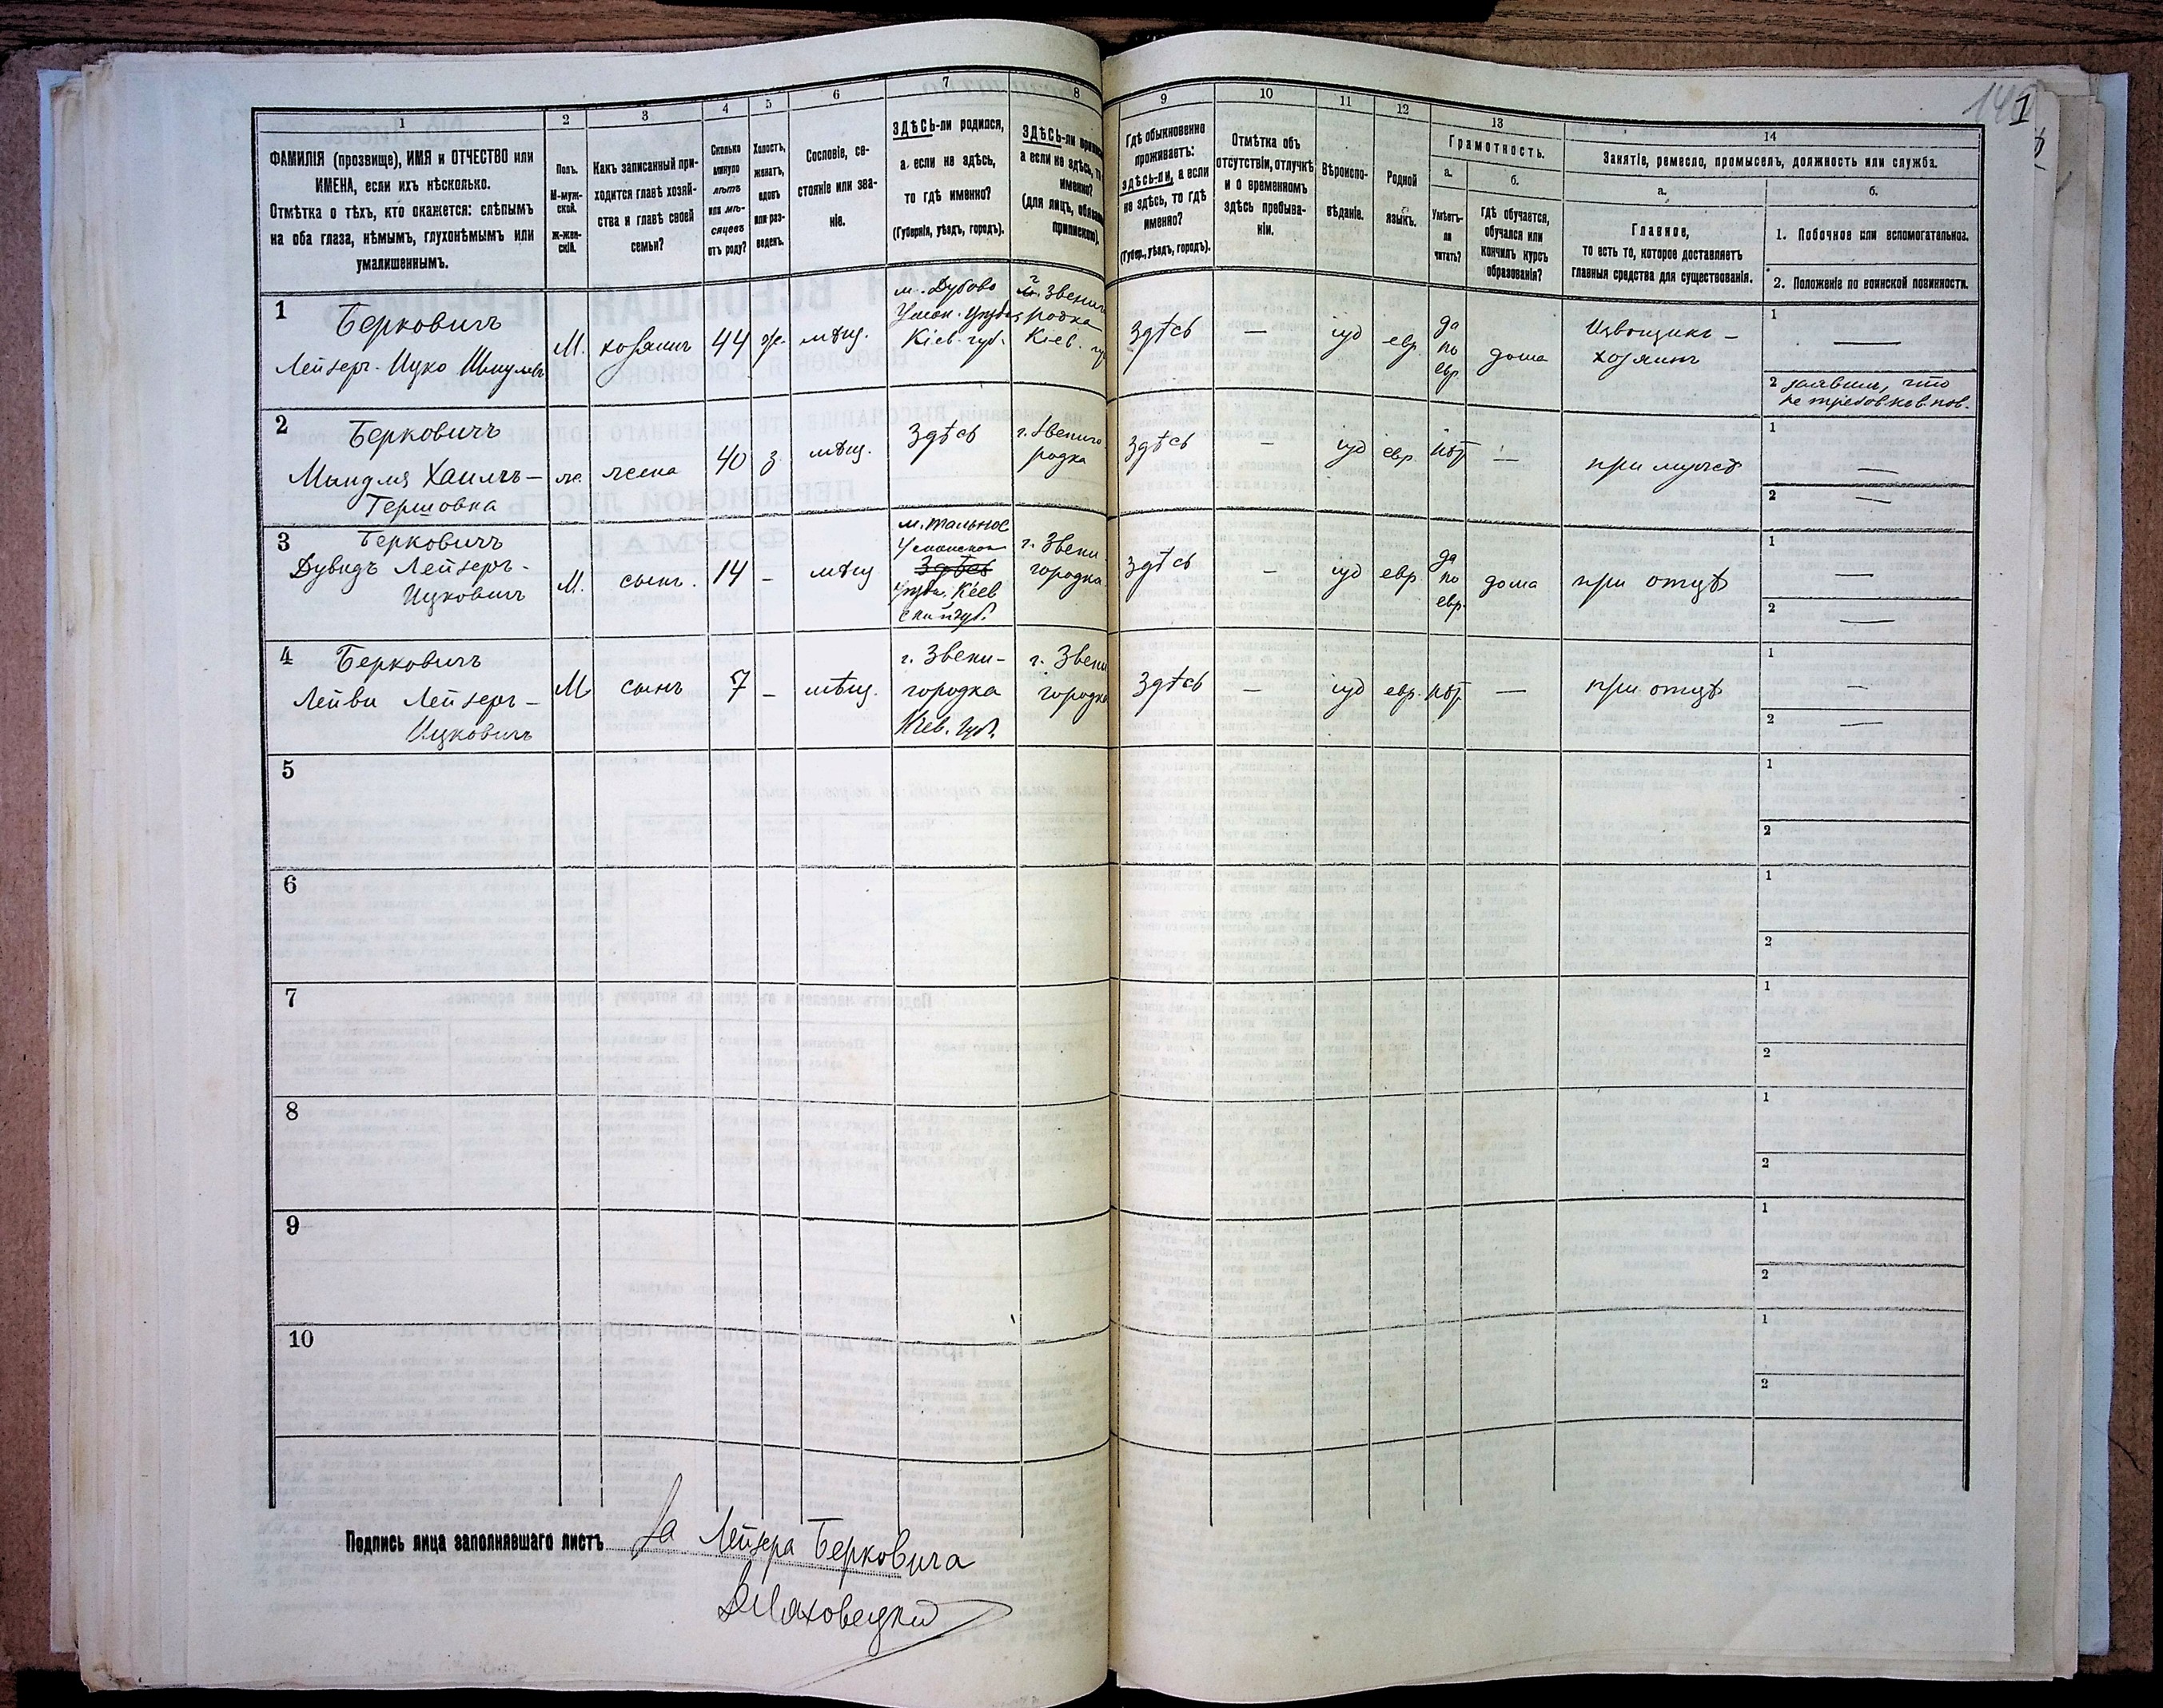 1
ФАМИЛІЯ (прозвище), ИМЯ и ОТЧЕСТВО или
ИМЕНА, если ихъ нѣсколько.
Отмѣтка о тѣхъ, кто окажется: слѣпымъ
на оба глаза, нѣмымъ, глухонѣмымъ или
умалишеннымъ.
2
Полъ.
М-муж-
ской.
ж-жен-
скій.
3
Какъ записанный при-
ходится главѣ хозяй-
ства и главѣ своей
семьи?
4
Сколько
минуло
лѣтъ
или мѣ-
сяцевъ
отъ роду?
5
Холостъ,
женатъ,
вдовъ
или раз-
веденъ.
6
Сословіе, со-
стояніе или зва-
ніе.
7
ЗДѢСЬ-ли родился,
а если не здѣсь,
то гдѣ именно?
(Губернія, уѣздъ, городъ).
8
ЗДѢСЬ-ли
а если не здѣсь,
именно?
(для лицъ,
9
Гдѣ обыкновенно
проживаетъ:
здѣсь-ли, а если
не здѣсь, то гдѣ
именно?
(Губер., уѣздъ, городъ).
10
Отмѣтка объ
отсутствіи, отлучкѣ
и о временномъ
здѣсь пребыва-
ніи.
11
Вѣроиспо-
вѣданіе.
12
Родной
языкъ.
13
Грамотность.
а.
Умѣетъ-
ли
читать?
б.
гдѣ обучается,
обучался или
кончилъ курсъ
образованія?
14
Занятіе, ремесло, промыселъ, должность или служба.
а.
Главное,
то есть то, которое доставляетъ
главныя средства для существованія.
б.
1. Побочное или вспомогательное.
2. Положеніе по воинской повинности.
1
Берковичъ
Лейзеръ-Ицко
М.
хозяинъ
44
ж.
мѣщ.
м. Дубово
Уман. уѣзда
Кіев. губ.
г. Звениго
родка
Кіев.
Здѣсь
—
іуд
евр.
да
по
евр.
дома
Извощикъ –
хозяинъ
1
—
2 заявилъ, что
2
Берковичъ
Мындля
ж.
жена
40
з.
мѣщ.
Здѣсь
г. Звениго
родка
Здѣсь
-
іуд
евр.
нѣт
—
при мужѣ
1
—
2
—
3
Берковичъ
Дувидъ Лейзеръ-
Ицковичъ
М.
сынъ.
14
-
мѣщ
м. Тальное
Уманскаго
Здѣсь
уѣзда. Кіев
ской губ.
г. Звени
городка
Здѣсь
-
іуд
евр
да
по
евр.
дома
при отцѣ
1
—
2
—
4
Берковичъ
Лейви Лейзеръ-
Ицковичъ
М
сынъ
7
-
мѣщ.
г. Звени-
городка
Кіев. губ.
г. Звени
городка
Здѣсь
—
іуд
евр.
нѣт
—
при отцѣ
1
—
2
—
5
1
2
6
1
2
7
1
2
8
1
2
9
1
2
10
1
2
Подпись лица заполнявшаго листъ За Лейзера Берковича